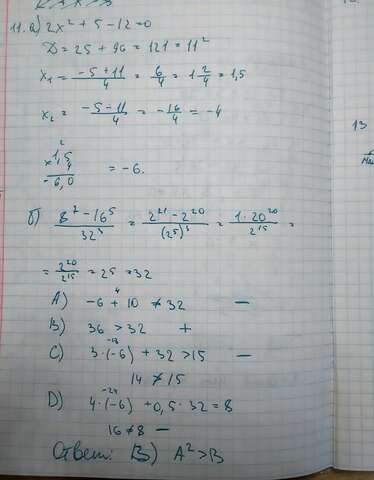 11. а) 2x² + 5 - 12 = 0
D = 25 + 96 = 121 = 11²
x₁ = (-5 + 11)/4 = 6/4 = 1 2/4 = 1,5
x₂ = (-5 - 11)/4 = -16/4 = -4
2
× 1,5
4
-6,0
= -6.
б) (8² - 16⁵)/32³ = (2²¹ - 2²⁰)/(2⁵)³ = (1 · 20²⁰)/2¹⁵ =
= 2²⁰/2¹⁵ = 25 = 32
4
A) -6 + 10 ≠ 32 —
B) 36 > 32 +
-18
C) 3 · (-6) + 32 > 15 —
14 ≠ 15
-24
D) 4 · (-6) + 0,5 · 32 = 8
16 ≠ 8 —
Ответ: B) A² > B
13